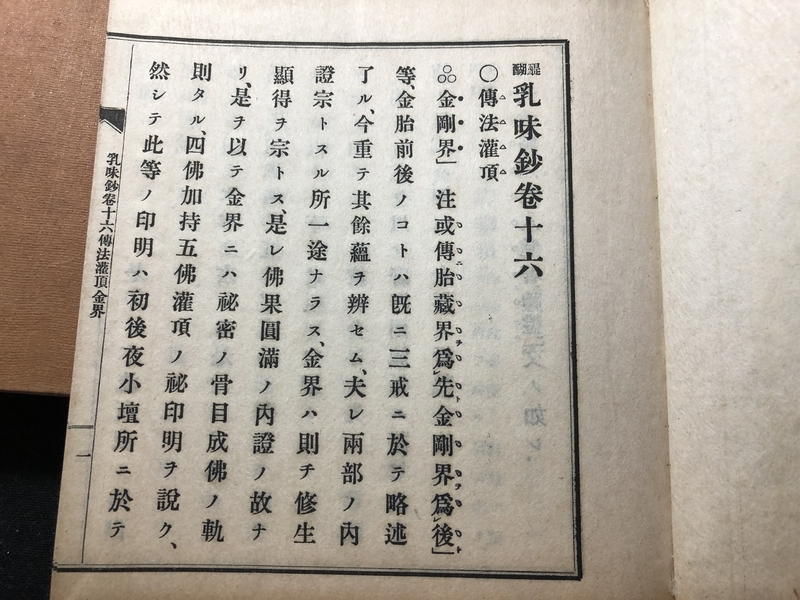 醍醐乳味鈔卷十六
〇傳法灌頂
金剛界」注或傳胎藏界爲先金剛界爲後」
等、金胎前後ノコトハ旣ニ三戒ニ於テ略述
了ル、今重テ其餘蘊ヲ辨セム、夫レ兩部ノ內
證宗トスル所一途ナラス、金界ハ則チ修生
顯得ヲ宗トス、是レ佛果圓滿ノ內證ノ故ナ
リ、是ヲ以テ金界ニハ祕密ノ骨目成佛ノ軌
則タル、四佛加持五佛灌頂ノ祕印明ヲ說ク、
然シテ此等ノ印明ハ初後夜小壇所ニ於テ
乳味鈔卷十六傳法灌頂金界
一